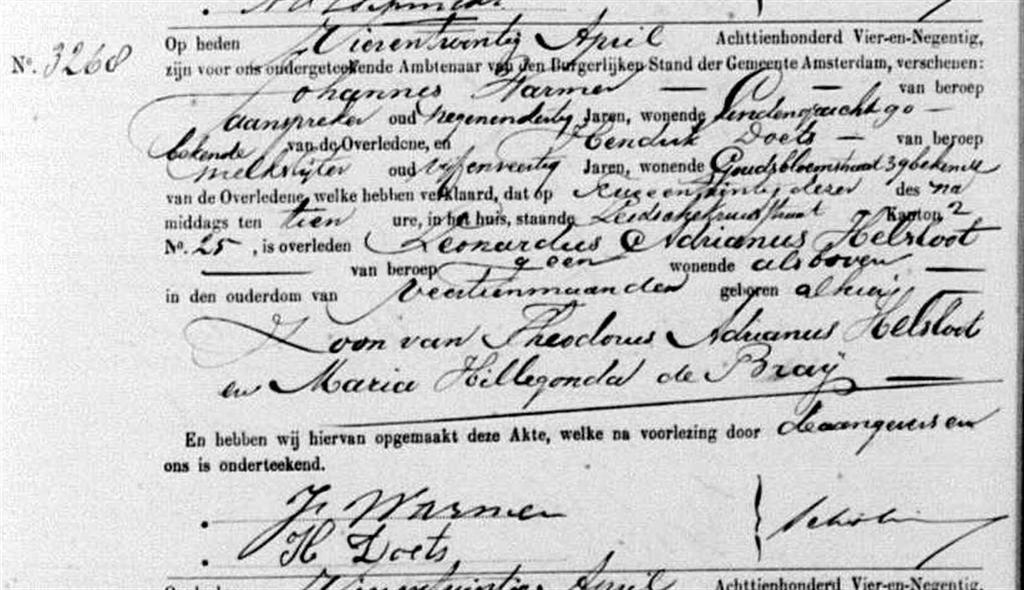 No. 3268
Op heden Vierentwintig April Achttienhonderd Vier-en-Negentig,
zijn voor ons ondergeteekende Ambtenaar van den Burgerlijken Stand der Gemeente Amsterdam, verschenen:
Johannes Warmer — van beroep
aanspreker oud negenendertig Jaren, wonende Lindengracht 90
bekende van de Overledene, en Hendrik Doets — van beroep
melkslijter oud vijfenveertig Jaren, wonende Goudsbloemstraat 39 bekende
van de Overledene, welke hebben verklaard, dat op dezer des na
middags ten tien ure, in het huis, staande Leidschekruisstraat Kanton 2
No. 25, is overleden Leonardus Adrianus Helsloot
— van beroep geen wonende alsboven —
in den ouderdom van veertien maanden geboren alhier
Zoon van Theodorus Adrianus Helsloot
en Maria Hillegonda de Braÿ —
En hebben wij hiervan opgemaakt deze Akte, welke na voorlezing door de aangevers en
ons is onderteekend.
J Warmer
H Doets
Vierentwintig April Achttienhonderd Vier-en-Negentig,